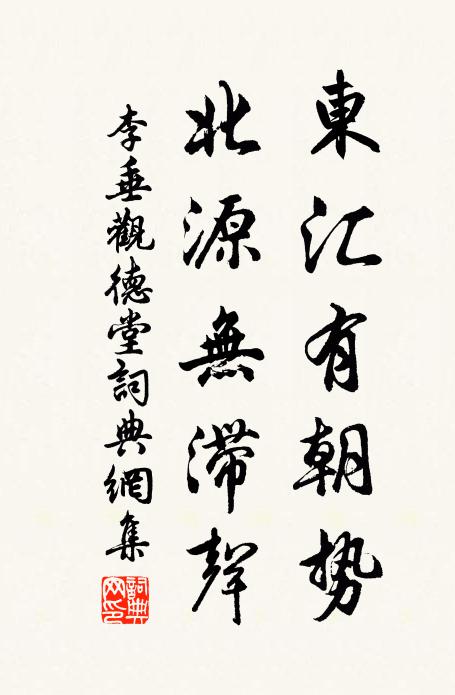 東汇有朝勢
北源無滯聲
李垂觀德堂詞典網集
詞典网印